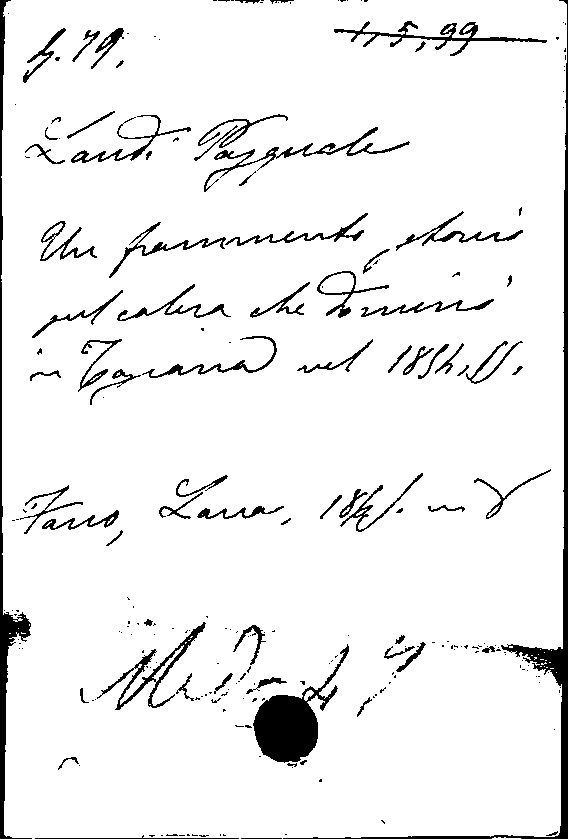 4.79.
1,5,99
Landi Pasquale
Un frammento storico
sul colera che dominò
in Toscana nel 1854.55.
Fano, Lana, 185/. in 8